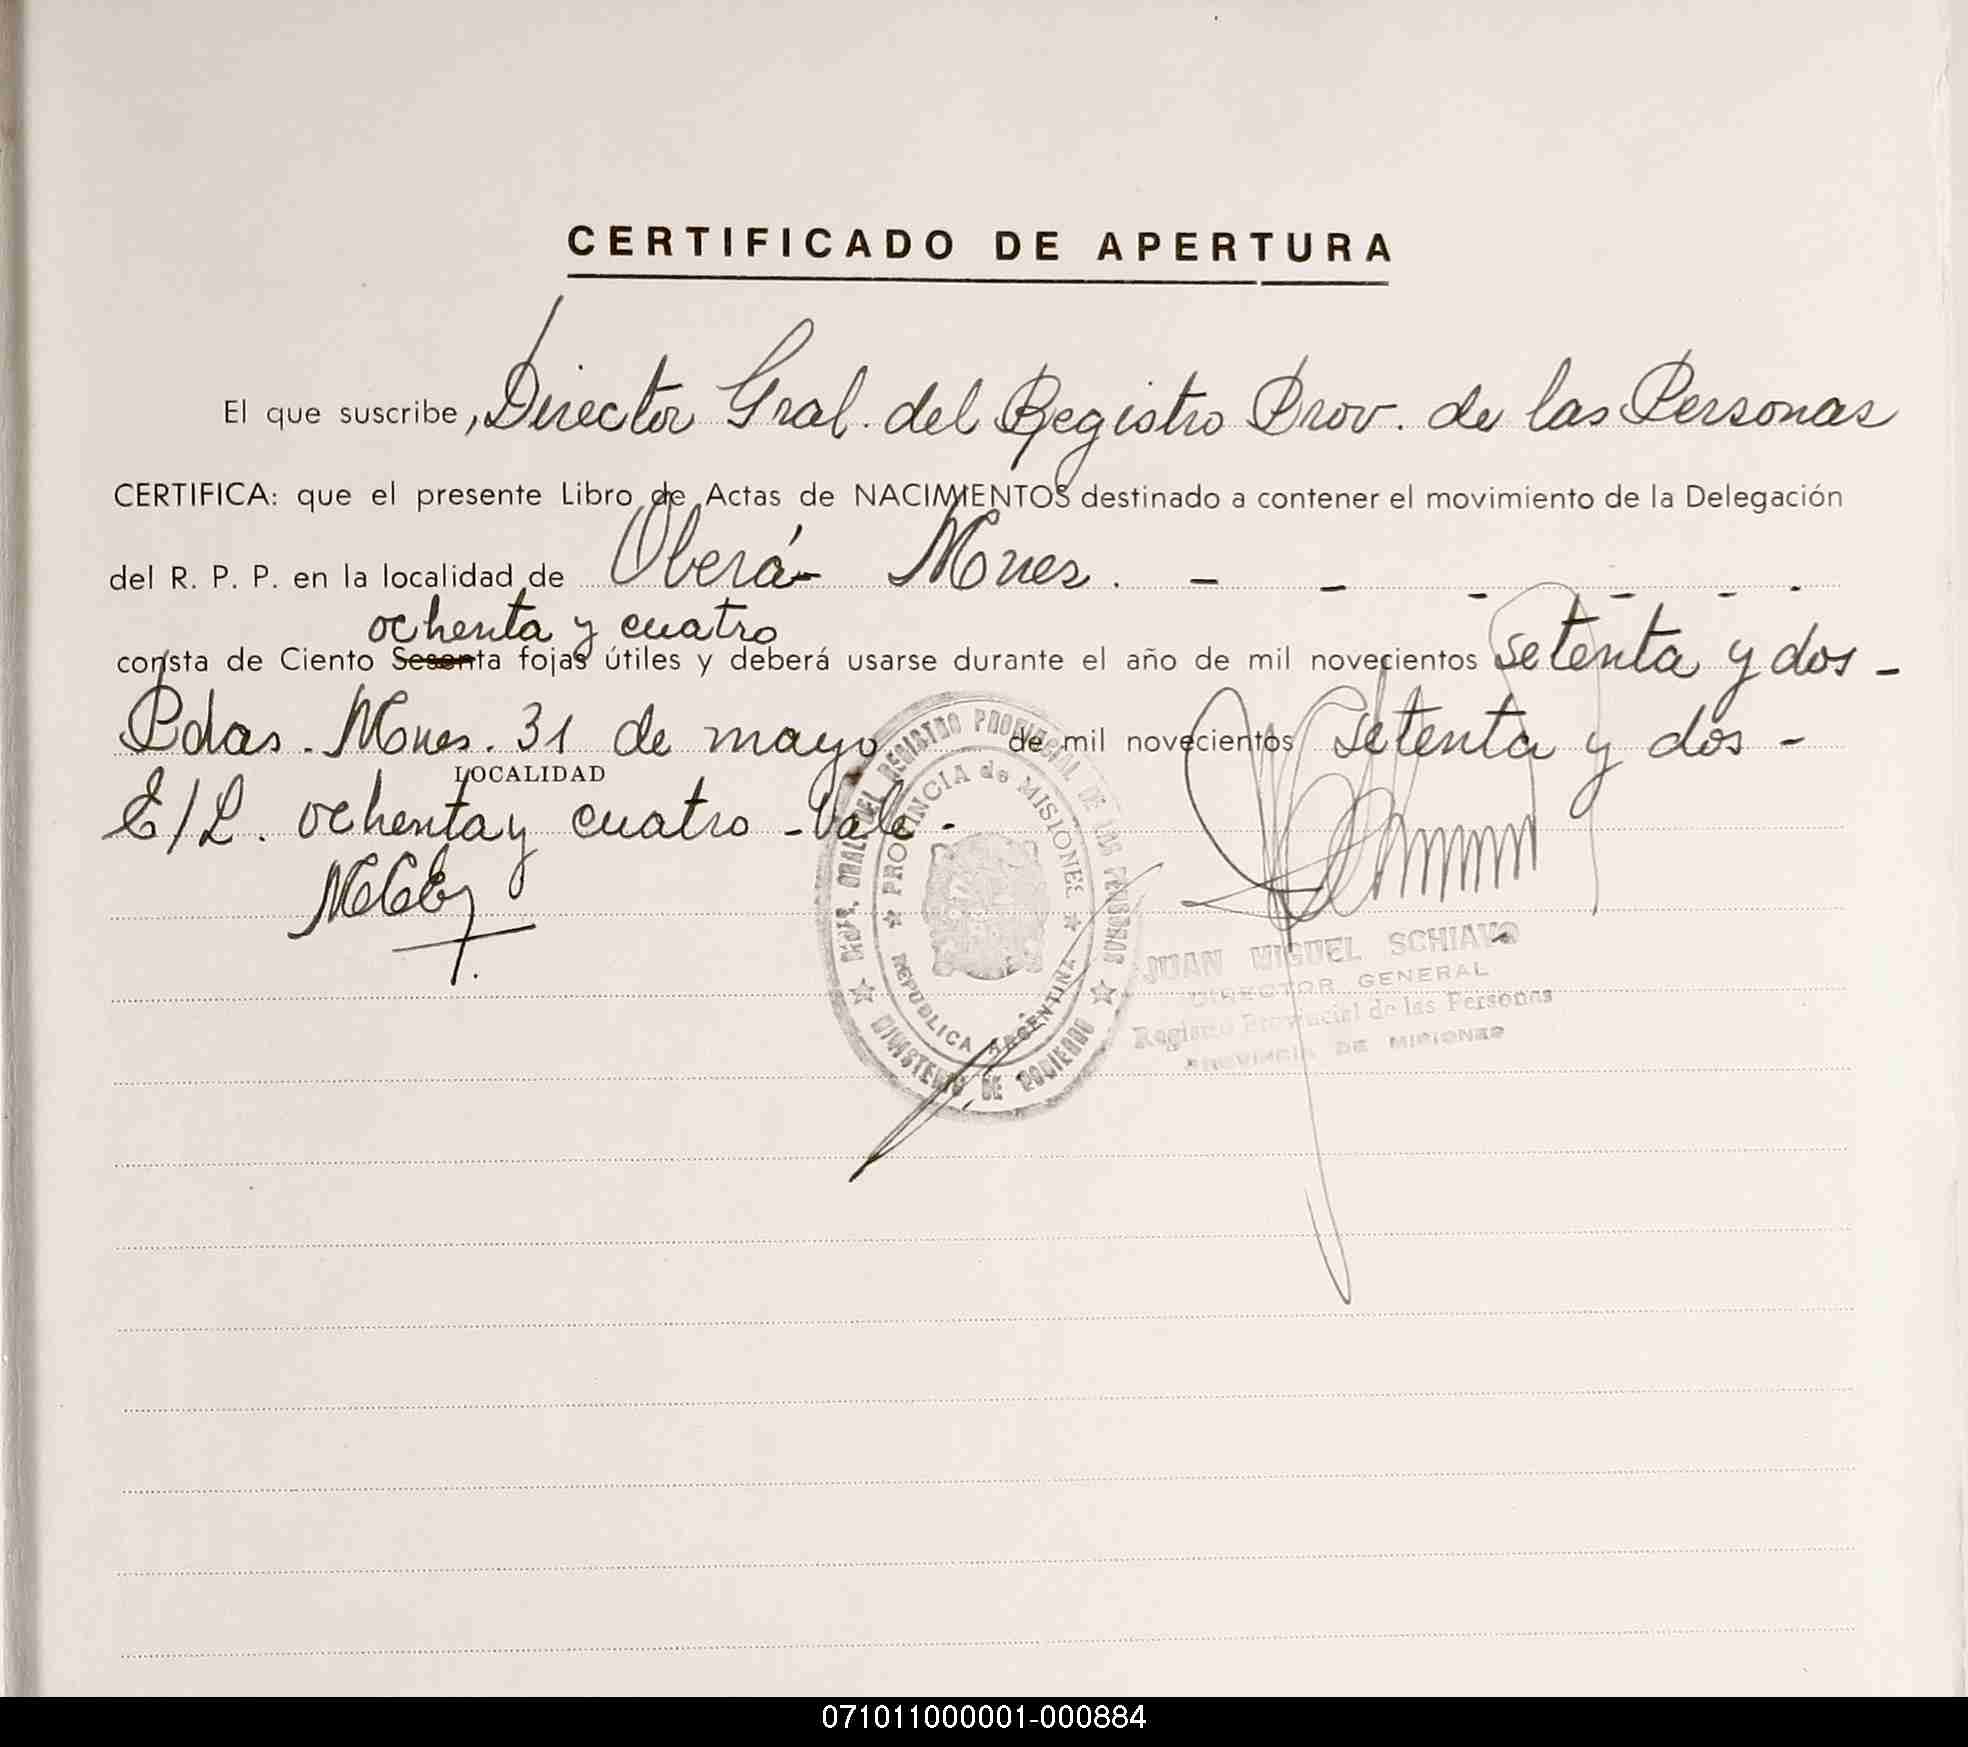 CERTIFICADO DE APERTURA
El que suscribe, Director Gral. del Registro Prov. de las Personas
CERTIFICA: que el presente Libro de Actas de NACIMIENTOS destinado a contener el movimiento de la Delegación
del R. P. P. en la localidad de Oberá - Mnes. - - - - - -
ochenta y cuatro
consta de Ciento Sesenta fojas útiles y deberá usarse durante el año de mil novecientos setenta y dos -
Pdas. Mnes. 31 de mayo de mil novecientos setenta y dos -
LOCALIDAD
E/L. ochenta y cuatro - Vale -
REGISTRO PROVINCIAL DE LAS PERSONAS
MINISTERIO DE GOBIERNO
PROVINCIA de MISIONES
REPUBLICA ARGENTINA
JUAN MIGUEL SCHIAVO
DIRECTOR GENERAL
Registro Provincial de las Personas
PROVINCIA DE MISIONES
071011000001-000884